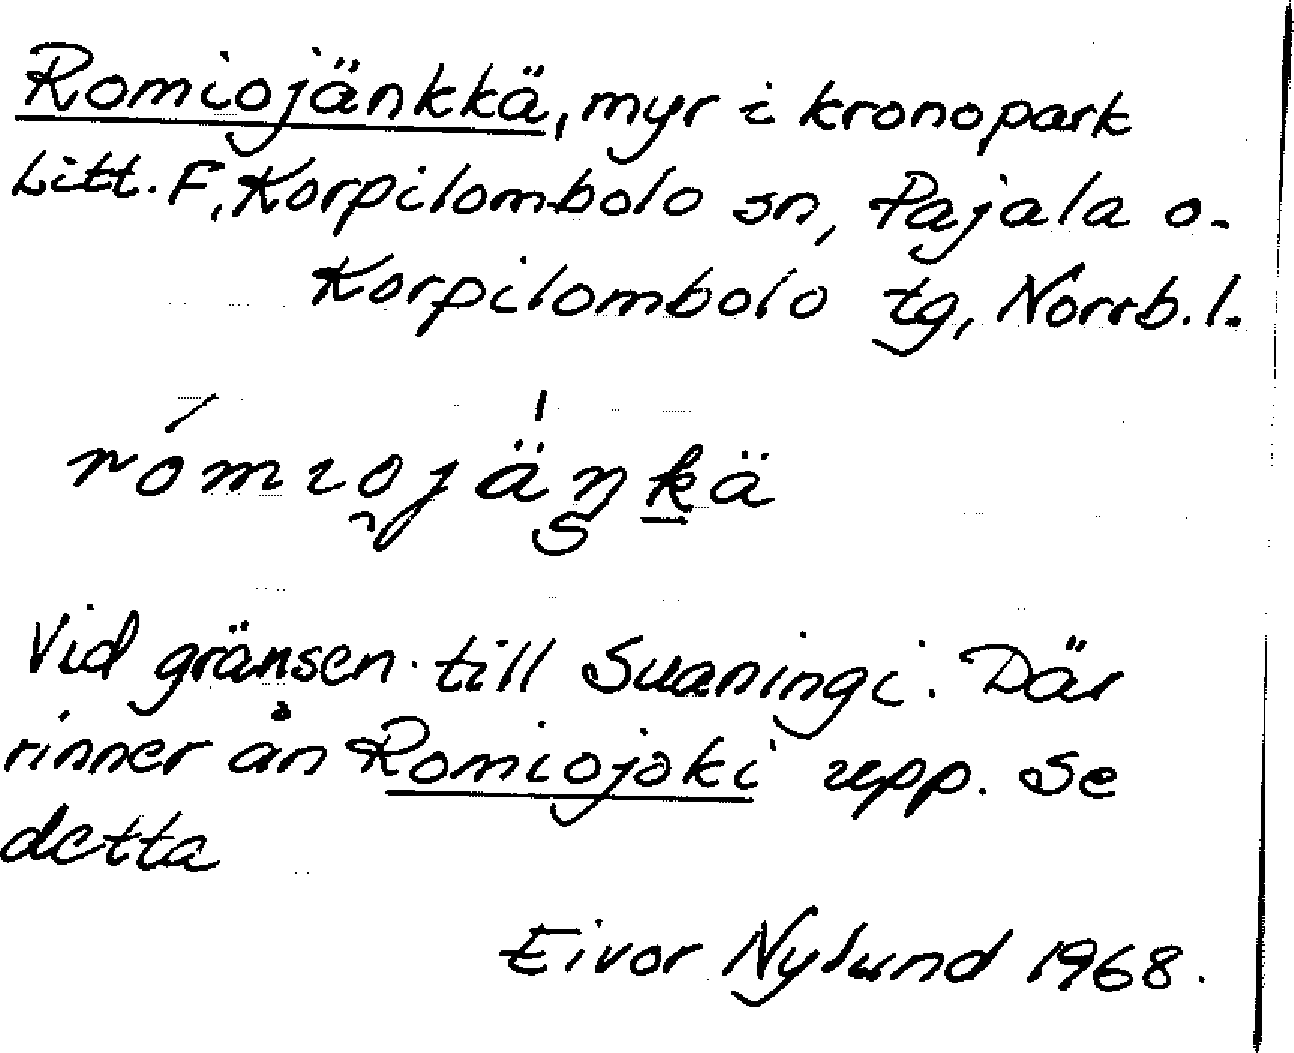 Romiojänkkä, myr i kronopark
Litt. F, Korpilombolo sn, Pajala o.
Korpilombolo tg, Norrb. l.
rómıo̯jäŋkä
Vid gränsen till Suaningi. Där
rinner ån Romiojoki upp. Se
detta
Eivor Nylund 1968.